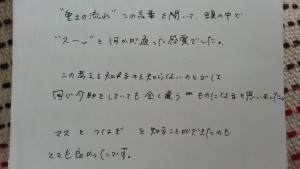 "重さの流れ" この言葉を聞いて、頭の中で
"スーッ" と何かが通った感覚でした。
この考えを知るのと知らないのとでは
同じ動作をしていても全く違うものになると思いました。
マスとつなぎを知ることができたのも
とても良かったです。